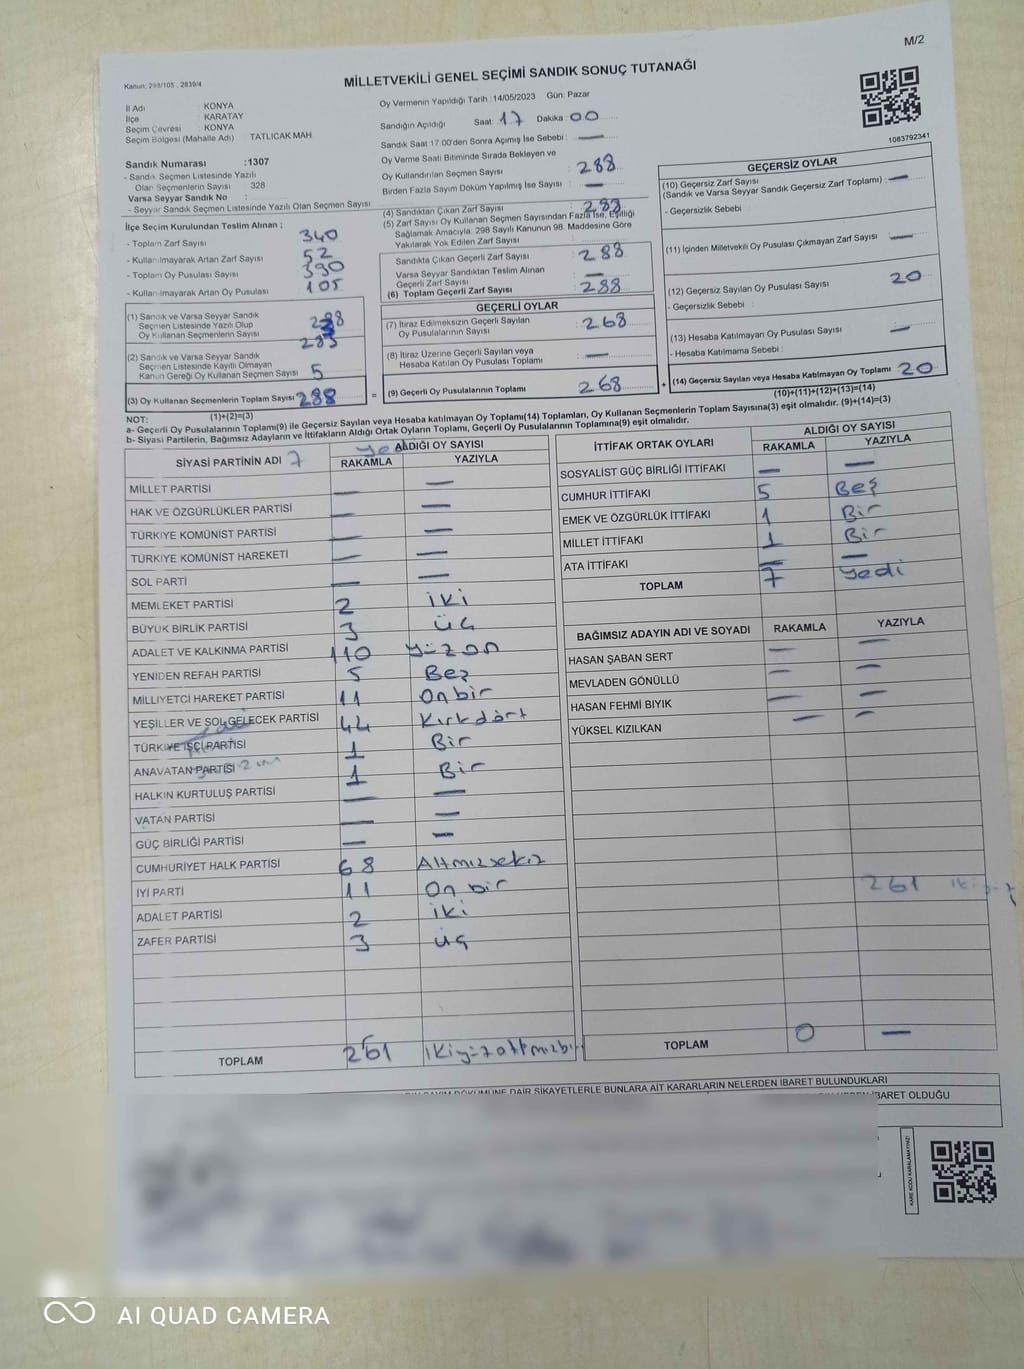 M/2
Kanun: 298/105 , 2839/4
MİLLETVEKİLİ GENEL SEÇİMİ SANDIK SONUÇ TUTANAĞI
İl Adı : KONYA
İlçe : KARATAY
Seçim Çevresi : KONYA
Seçim Bölgesi (Mahalle Adı) TATLICAK MAH
Sandık Numarası :1307
- Sandık Seçmen Listesinde Yazılı
Olan Seçmenlerin Sayısı : 328
Varsa Seyyar Sandık No :
- Seyyar Sandık Seçmen Listesinde Yazılı Olan Seçmen Sayısı
Oy Vermenin Yapıldığı Tarih :14/05/2023 Gün: Pazar
Sandığın Açıldığı Saat: 17 Dakika: 00
Sandık Saat 17.00'den Sonra Açımış İse Sebebi : —
Oy Verme Saati Bitiminde Sırada Bekleyen ve
Oy Kullandırılan Seçmen Sayısı : 288
Birden Fazla Sayım Döküm Yapılmış İse Sayısı : —
1083792341
İlçe Seçim Kurulundan Teslim Alınan ;
- Toplam Zarf Sayısı 340
- Kullanılmayarak Artan Zarf Sayısı 52
- Toplam Oy Pusulası Sayısı 390
- Kullanılmayarak Artan Oy Pusulası 105
(1) Sandık ve Varsa Seyyar Sandık
Seçmen Listesinde Yazılı Olup
Oy Kullanan Seçmenlerin Sayısı 283
(2) Sandık ve Varsa Seyyar Sandık
Seçmen Listesinde Kayıtlı Olmayan
Kanun Gereği Oy Kullanan Seçmen Sayısı 5
(3) Oy Kullanan Seçmenlerin Toplam Sayısı 288
(1)+(2)=(3)
(4) Sandıktan Çıkan Zarf Sayısı : 288
(5) Zarf Sayısı Oy Kullanan Seçmen Sayısından Fazla İse, Eşitliği
Sağlamak Amacıyla; 298 Sayılı Kanunun 98. Maddesine Göre
Yakılarak Yok Edilen Zarf Sayısı :
Sandıkta Çıkan Geçerli Zarf Sayısı : 288
Varsa Seyyar Sandıktan Teslim Alınan
Geçerli Zarf Sayısı : —
(6) Toplam Geçerli Zarf Sayısı : 288
GEÇERLİ OYLAR
(7) İtiraz Edilmeksizin Geçerli Sayılan
Oy Pusulalarının Sayısı : 268
(8) İtiraz Üzerine Geçerli Sayılan veya
Hesaba Katılan Oy Pusulası Toplamı : —
= (9) Geçerli Oy Pusulalarının Toplamı 268 +
GEÇERSİZ OYLAR
(10) Geçersiz Zarf Sayısı
(Sandık ve Varsa Seyyar Sandık Geçersiz Zarf Toplamı) : —
- Geçersizlik Sebebi :
(11) İçinden Milletvekili Oy Pusulası Çıkmayan Zarf Sayısı —
(12) Geçersiz Sayılan Oy Pusulası Sayısı 20
- Geçersizlik Sebebi :
(13) Hesaba Katılmayan Oy Pusulası Sayısı —
- Hesaba Katılmama Sebebi :
(14) Geçersiz Sayılan veya Hesaba Katılmayan Oy Toplamı 20
(10)+(11)+(12)+(13)=(14)
NOT:
a- Geçerli Oy Pusulalarının Toplamı(9) ile Geçersiz Sayılan veya Hesaba katılmayan Oy Toplamı(14) Toplamları, Oy Kullanan Seçmenlerin Toplam Sayısına(3) eşit olmalıdır. (9)+(14)=(3)
b- Siyasi Partilerin, Bağımsız Adayların ve İttifakların Aldığı Ortak Oyların Toplamı, Geçerli Oy Pusulalarının Toplamına(9) eşit olmalıdır.
SİYASİ PARTİNİN ADI 7 ALDIĞI OY SAYISI
RAKAMLA YAZIYLA
MİLLET PARTİSİ — —
HAK VE ÖZGÜRLÜKLER PARTİSİ — —
TÜRKİYE KOMÜNİST PARTİSİ — —
TÜRKİYE KOMÜNİST HAREKETİ — —
SOL PARTİ — —
MEMLEKET PARTİSİ 2 iki
BÜYÜK BİRLİK PARTİSİ 3 üç
ADALET VE KALKINMA PARTİSİ 110 yüzon
YENİDEN REFAH PARTİSİ 5 Beş
MİLLİYETÇİ HAREKET PARTİSİ 11 On bir
YEŞİLLER VE SOL GELECEK PARTİSİ 44 Kırkdört
TÜRKİYE İŞÇİ PARTİSİ 1 Bir
ANAVATAN PARTİSİ 1 Bir
HALKIN KURTULUŞ PARTİSİ — —
VATAN PARTİSİ — —
GÜÇ BİRLİĞİ PARTİSİ — —
CUMHURİYET HALK PARTİSİ 68 Altmızsekiz
İYİ PARTİ 11 On bir
ADALET PARTİSİ 2 iki
ZAFER PARTİSİ 3 üç
TOPLAM 261 ikiyüzaltmızbir
İTTİFAK ORTAK OYLARI ALDIĞI OY SAYISI
RAKAMLA YAZIYLA
SOSYALİST GÜÇ BİRLİĞİ İTTİFAKI — —
CUMHUR İTTİFAKI 5 Beş
EMEK VE ÖZGÜRLÜK İTTİFAKI 1 Bir
MİLLET İTTİFAKI 1 Bir
ATA İTTİFAKI — —
TOPLAM 7 yedi
BAĞIMSIZ ADAYIN ADI VE SOYADI RAKAMLA YAZIYLA
HASAN ŞABAN SERT — —
MEVLADEN GÖNÜLLÜ — —
HASAN FEHMİ BIYIK — —
YÜKSEL KIZILKAN — —
261
TOPLAM 0 —
DÖKÜMÜNE DAİR ŞİKAYETLERLE BUNLARA AİT KARARLARIN NELERDEN İBARET BULUNDUKLARI
İBARET OLDUĞU
KARE KODU KARALAMAYINIZ!
AI QUAD CAMERA